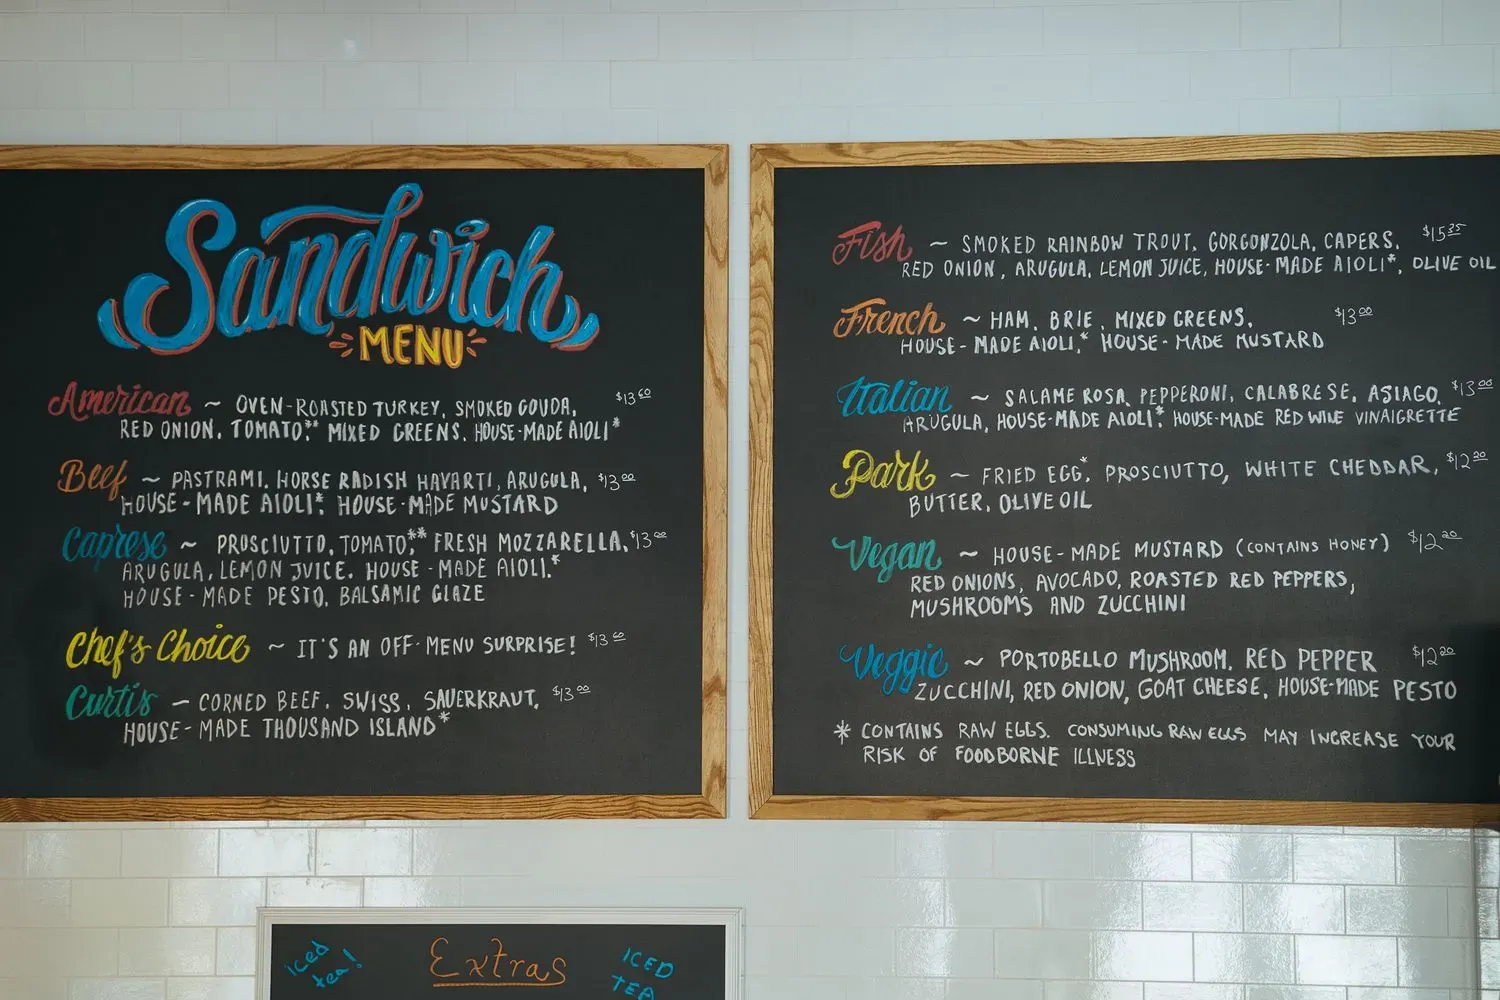 Sandwich
MENU
American ~ OVEN-ROASTED TURKEY, SMOKED GOUDA,
RED ONION, TOMATO,** MIXED GREENS, HOUSE-MADE AIOLI*
Beef ~ PASTRAMI, HORSE RADISH HAVARTI, ARUGULA, $13.00
HOUSE-MADE AIOLI*, HOUSE-MADE MUSTARD
Caprese ~ PROSCIUTTO, TOMATO,** FRESH MOZZARELLA, $13.00
ARUGULA, LEMON JUICE, HOUSE-MADE AIOLI,*
HOUSE-MADE PESTO, BALSAMIC GLAZE
Chef's Choice ~ IT'S AN OFF-MENU SURPRISE!
Curtis ~ CORNED BEEF, SWISS, SAUERKRAUT, $13.00
HOUSE-MADE THOUSAND ISLAND*
Fish ~ SMOKED RAINBOW TROUT, GORGONZOLA, CAPERS,
RED ONION, ARUGULA, LEMON JUICE, HOUSE-MADE AIOLI*, OLIVE OIL
French ~ HAM, BRIE, MIXED GREENS, $13.00
HOUSE-MADE AIOLI,* HOUSE-MADE MUSTARD
Italian ~ SALAME ROSA, PEPPERONI, CALABRESE, ASIAGO, $13.00
ARUGULA, HOUSE-MADE AIOLI*, HOUSE-MADE RED WINE VINAIGRETTE
Park ~ FRIED EGG*, PROSCIUTTO, WHITE CHEDDAR, $12.00
BUTTER, OLIVE OIL
Vegan ~ HOUSE-MADE MUSTARD (CONTAINS HONEY)
RED ONIONS, AVOCADO, ROASTED RED PEPPERS,
MUSHROOMS AND ZUCCHINI
Veggie ~ PORTOBELLO MUSHROOM, RED PEPPER
ZUCCHINI, RED ONION, GOAT CHEESE, HOUSE-MADE PESTO
* CONTAINS RAW EGGS. CONSUMING RAW EGGS MAY INCREASE YOUR
RISK OF FOODBORNE ILLNESS
Iced
tea!
Extras
ICED
TEA